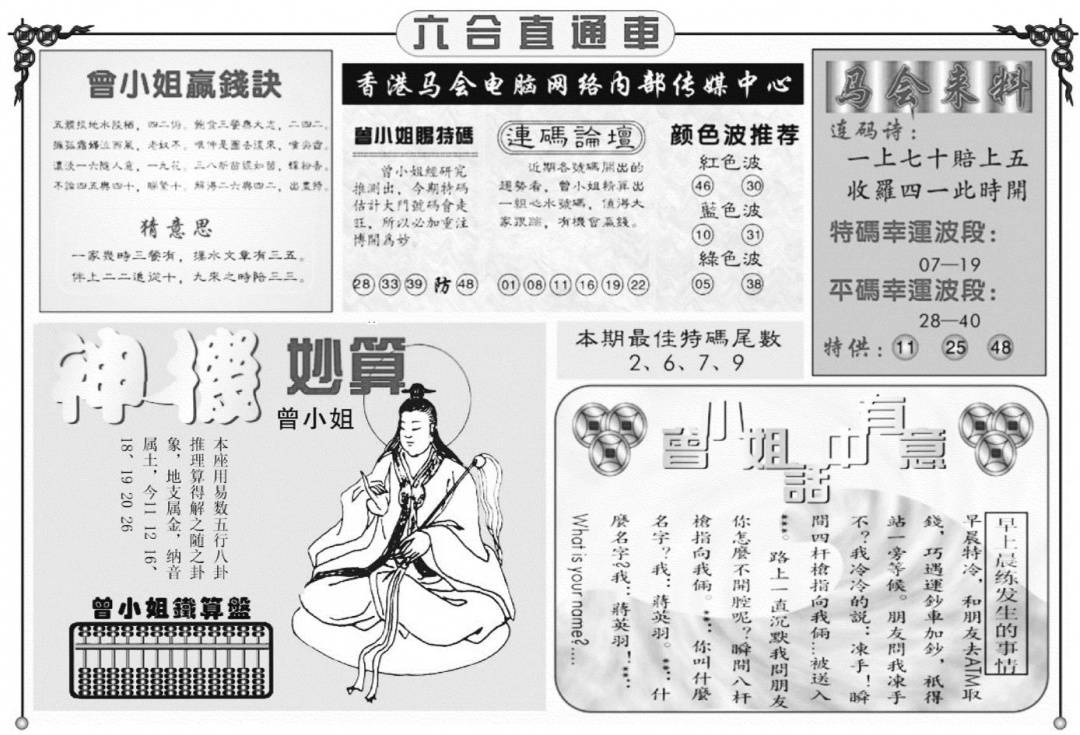 六合直通車
曾小姐贏錢訣
五體投地水段橋，四二份。飽食三餐與大志，二四二。
不論四五與四十，
猜意思
一家幾時三餐有，
伴上二二追從十，九來之時陪三三。
香港马会电脑网络内部传媒中心
曾小姐賜特碼
曾小姐經研究
推測出，今期特码
估計大門號碼會走
旺，所以必加重注
博開為妙。
28 33 39 防 48
連碼論壇
近期各號碼開出的
趨勢看，曾小姐精算出
一組心水號碼，值得大
家跟踪，有機會贏錢。
01 08 11 16 19 22
颜色波推荐
紅色波
46 30
藍色波
10 31
綠色波
05 38
马会来料
连码诗：
一上七十賠上五
收羅四一此時開
特碼幸運波段：
07—19
平碼幸運波段：
28—40
特供：11 25 48
本期最佳特碼尾數
2、6、7、9
神機妙算
曾小姐
本座用易数五行八卦
推理算得解之随之卦
象，地支属金，纳音
属土，今11 12 16、
18、19 20 26
曾小姐鐵算盤
曾小姐話中有意
早上晨练发生的事情
早晨特冷，和朋友去AIM取
錢，巧遇運鈔車加鈔，祇得
站一旁等候。朋友問我凍手
不？我冷冷的説：凍手！瞬
間四杆槍指向我倆…被送入
***。路上一直沉默我問朋友
你怎麼不開腔呢？瞬間八杆
槍指向我倆。**：你叫什麼
名字？我：蔣英羽。**：什
麼名字?我：蔣英羽！**：
What is your name?....